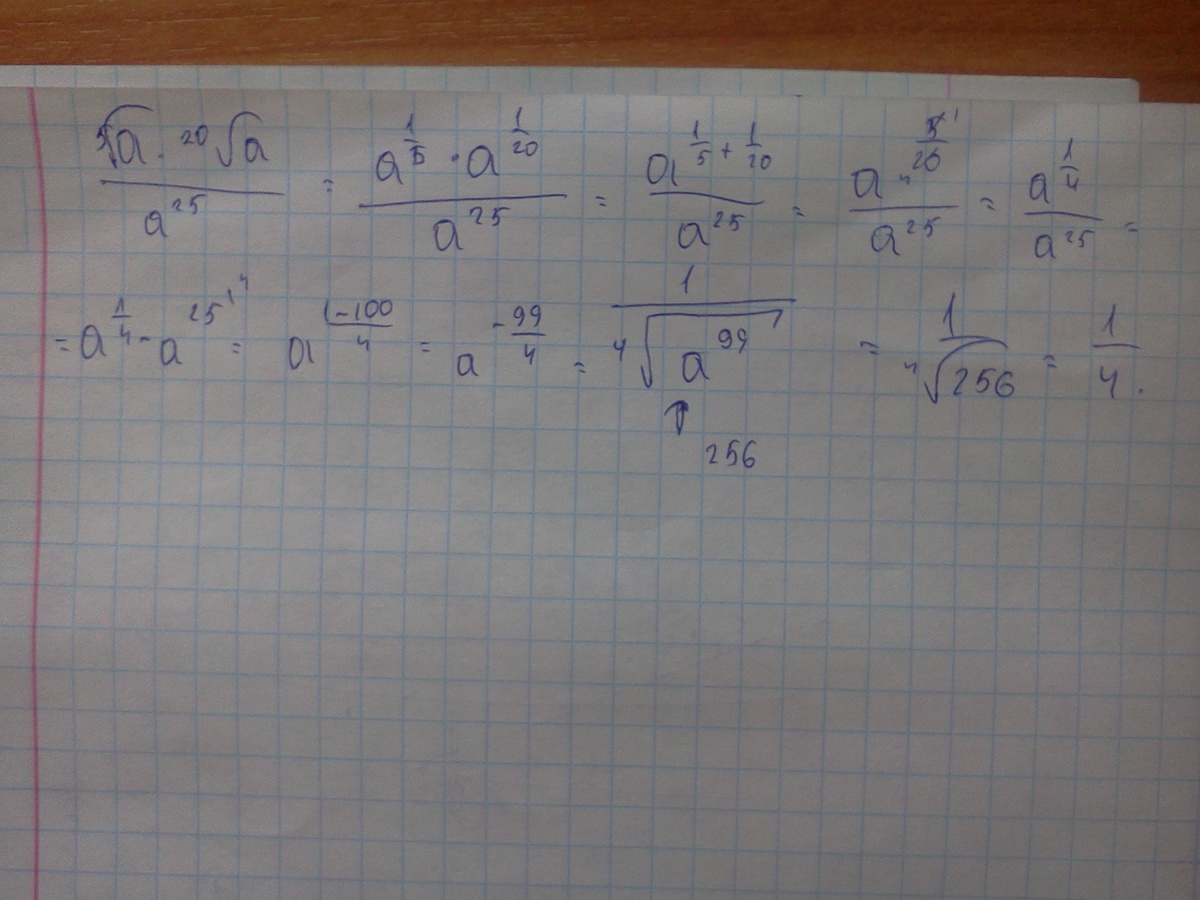 ⁵√a · ²⁰√a / a²⁵ = a^(1/5) · a^(1/20) / a²⁵ = a^(1/5 + 1/20) / a²⁵ = a^(5/20) / a²⁵ = a^(1/4) / a²⁵ =
= a^(1/4) - a^25 = a^((1-100)/4) = a^(-99/4) = 1 / ⁴√(a⁹⁹) = 1 / ⁴√256 = 1/4.
256